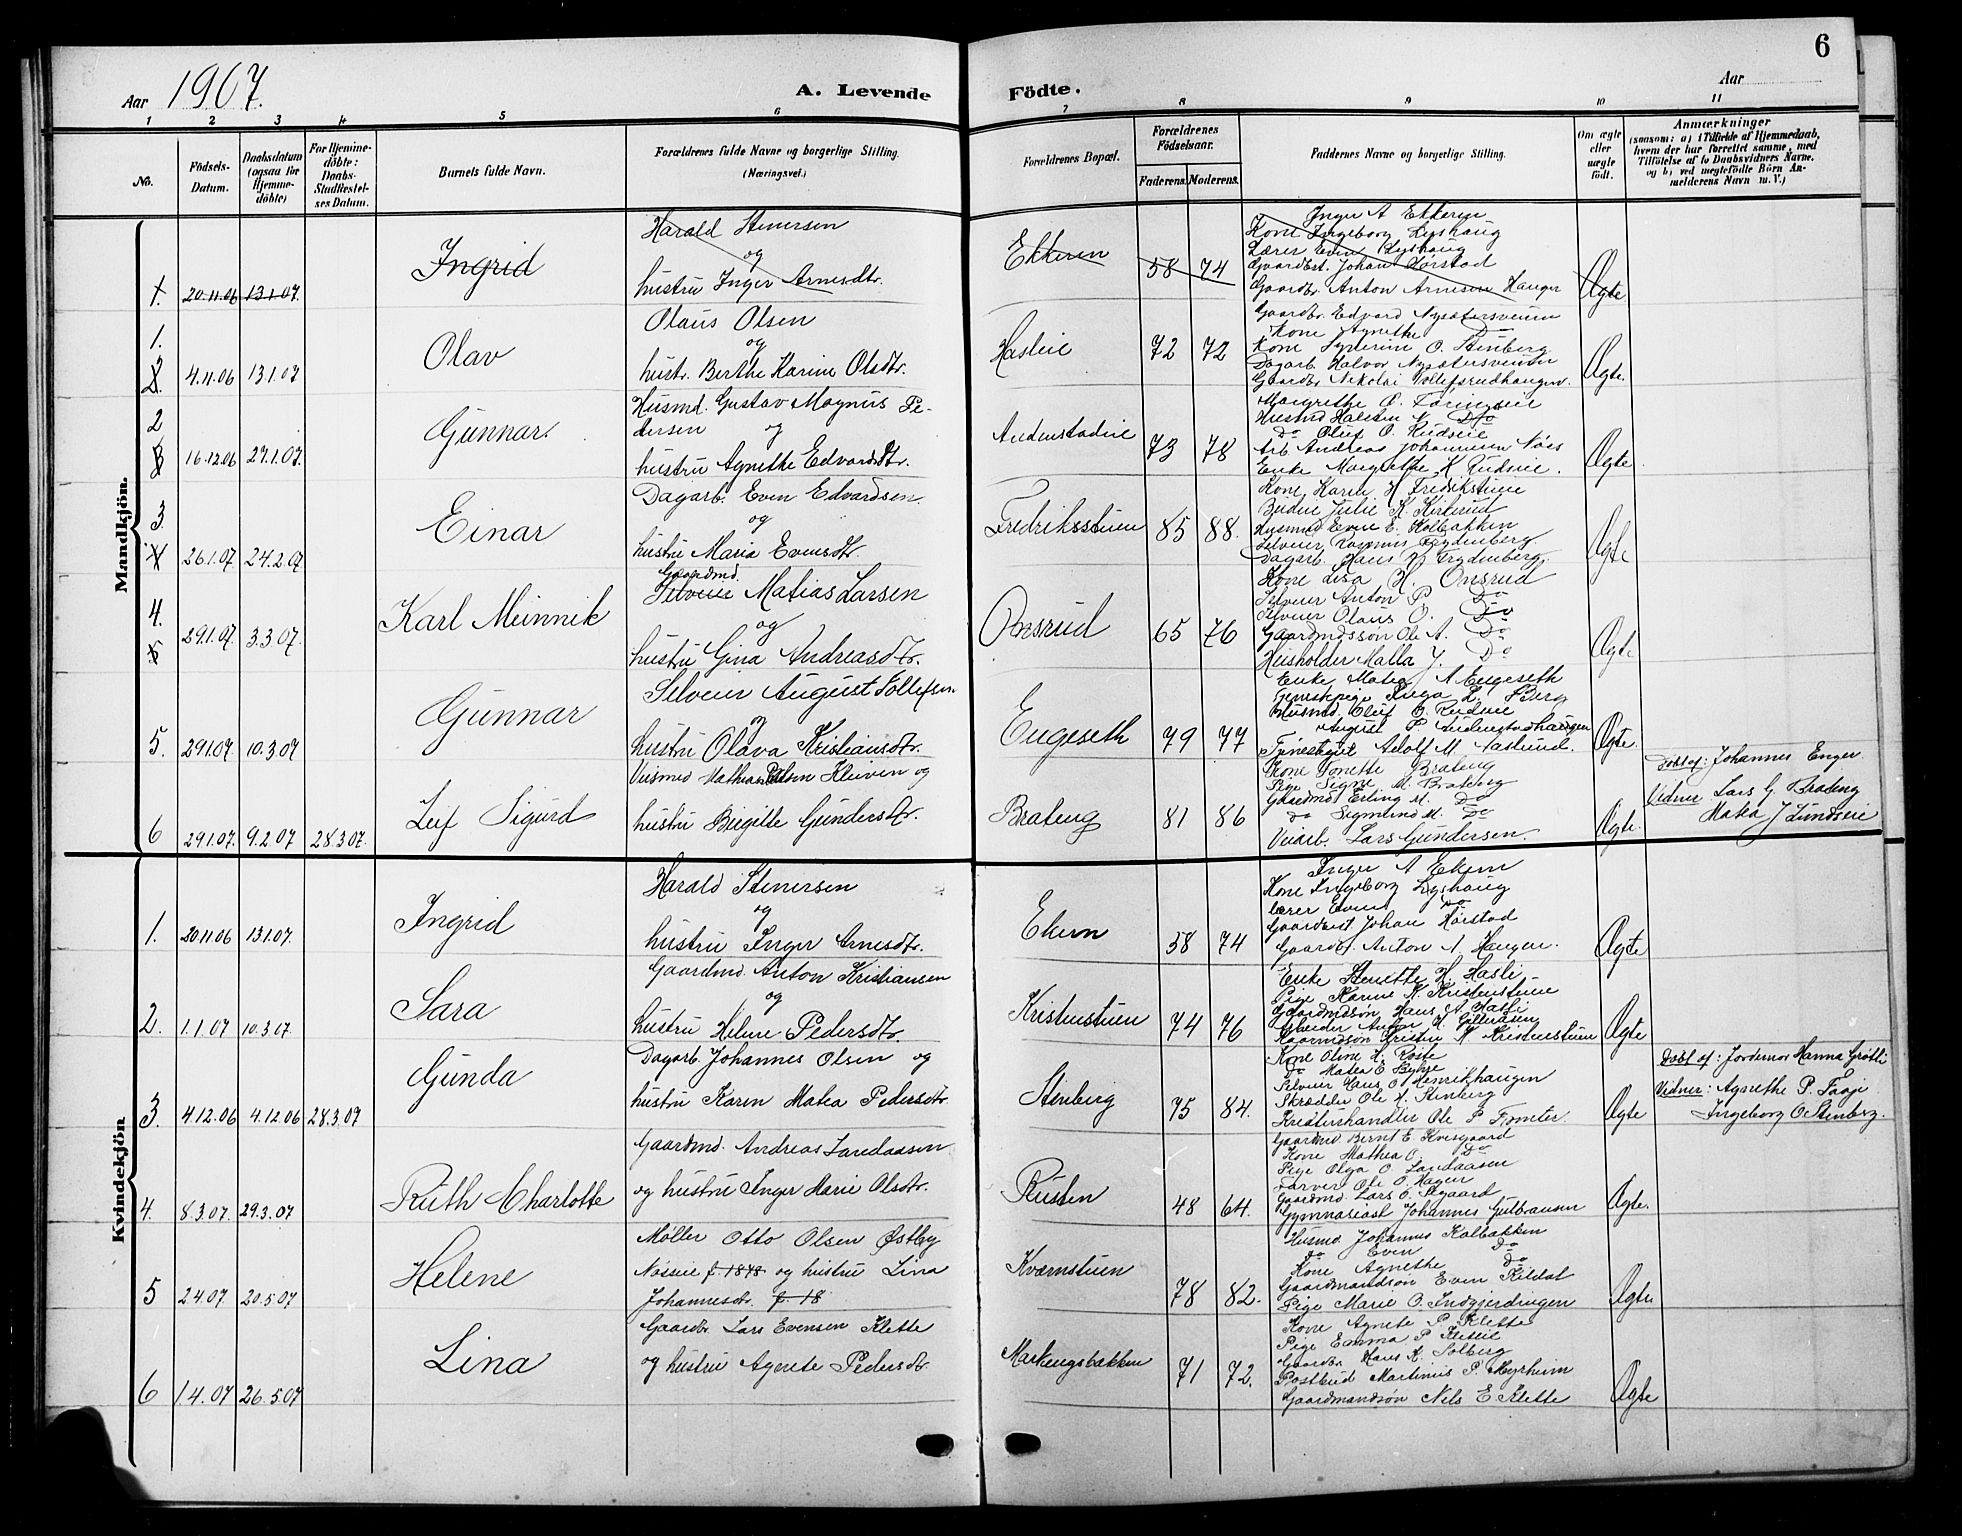 6
Aar 1907.
A. Levende Födte.
Aar
1 2 3 4 5 6 7 8 9 10 11
No.
Födsels-Datum.
Daabsdatum (ogsaa for Hjemmedöbte)
For Hjemmedöbte: Daabs-Stadfestelses Datum.
Barnets fulde Navn.
Forældrenes fulde Navne og borgerlige Stilling. (Næringsvei.)
Forældrenes Bopæl.
Forældrenes Födselsaar.
Faderens. Moderens.
Faddernes Navne og borgerlige Stilling.
Om ægte eller uægte födt.
Anmærkninger
(saasom: a) i Tilfælde af Hjemmedaab, hvem der har forrettet samme, med Tilföielse af to Daabsvidners Navne. og b) ved uægtefödte Börn Anmelderens Navn m. V.)
Mandkjön.
1. 20.11.06 13.1.07. Ingrid
Harald Stenersen
og
hustru Inger Arnesdtr.
Ekkeren 58 74
Inger A Ekkeren
Kone Ingeborg Lyshaug
Lærer Even Lyshaug
Gaardbest. Johan Hørstad
Gaardbr. Anton Arnesen Haugen
Ægte
1.
2 4.11.06 13.1.07 Olav
Olaus Olsen
og
hustr. Berthe Karine Olsdtr.
Hasleie 72 72
Gaardbr. Edvard Nysætersveien
Kone Agnethe Do
Kone Syverine O. Stenberg
Dagarb. Halvor Nysætersveien
Gaardbr. Nikolai Tollefsrudhaugen.
Ægte.
2
3 16.12.06 27.1.07. Gunnar.
Husmd. Gustav Magnus Pe-
dersen og
hustru Agnethe Edvardsdtr.
73 78
Margrethe O.
Husmd Halsten K. Do
Do Oluf O. Rudseie
Arb. Andreas Johannesen Næss
Enke Margrethe K Rudseie.
Ægte
3
4 26.1.07 24.2.07 Einar
Dagarb. Even Edvardsen
og
hustru Maria Evensdtr.
Fredriksstuen 85 88.
Kone Karen H Fredrikstuen
Budeie Julie K. Kirkerud
Husmd Even E. Kolbakken
Selveier Rasmus Frydenberg
Dagarb. Hans H Frydenberg.
Ægte
4.
5 29.1.07. 3.3.07. Karl Meinnik
Gaardmd.
Selveier Matias Larsen
og
hustru Gina Andreasdtr.
Onsrud 65 76
Kone Lisa H. Onsrud
Selveier Anton P Do
Selveier Olaus O. Do
Gaardmdssøn Ole A. Do
Husholder Malla J. Do
Ægte
5. 29.1.07. 10.3.07 Gunnar
Selveier August Tollefsen
og
hustru Olava Kristiansdtr.
Engeseth 79 77
Enke Matea A Engeseth
Tjenestepige Inga L. Berg
Husmd. Oluf O. Rudseie
August P.
Tjenestegut Adolf M.
Ægte.
6 29.1.07. 9.2.07 28.3.07. Leif Sigurd
Mathias Olsen Kleiven og
hustru Birgitte Gundersdtr.
Brateng 81 86
Kone Tonette Brateng
Pige Signe M. Brateng
Gaardmd Erling M. Do
Do Sigmund M. Do
Veiarb. Lars Gundersen
Ægte.
Døbt af: Johannes Enger.
Vidner Lars G. Brateng
Matea J Lundseie
Kvindekjön
1. 20.11.06 13.1.07. Ingrid
Harald Stenersen
og
hustru Inger Arnesdtr.
Ekern 58 74
Inger A Ekern
Kone Ingeborg Lyshaug
Lærer Even Do
Gaardbest Johan Hørstad
Gaardb. Anton A Haugen.
Ægte
2. 1.1.07 10.3.07. Sara
Gaardmd. Anton Kristiansen
og
hustru Helene Pedersdtr.
Kristenstuen 74 76
Enke Stenette H. Hasli
Pige Karine K. Kristenstuen
Gaardmdsøn Hans A Hasli
Arbeider Anton H. Gilleråsen
Gaardmdsøn Kristen K Kristenstuen
Ægte
3. 4.12.06 4.12.06 28.3.07 Gunda
Dagarb. Johannes Olsen og
hustru Karen Matea Pedersdtr.
Stenberg 75 84.
Kone Oline H. Røste
Do Matea E
Selveier Hans O Henrikhaugen
Skrædder Ole H. Stenberg
Kreaturhandler Ole P Fjømter.
Ægte
Døbt af: Jordemor Hanna Grøtli
Vidner: Agnethe P. Faaje
Ingeborg O. Stenberg.
4. 8.3.07. 29.3.07 Ruth Charlotte
Gaardmd. Andreas Landaasen
og hustru Inger Marie Olsdtr.
Rusten 48 64.
Gaardmd Bernt E. Kvisgaard
Kone Mathea O. Do
Pige Olga O. Landaasen
Farver Ole O. Hagen
Gaardmd. Lars O. Segaard
Gymnasiast Johannes Gulbransen
Ægte.
5 2.4.07 20.5.07 Helene
Møller Otto Olsen Østby
Nøsseie f. 1878 og hustru Lina
Johannesdtr. f. 18
Kværnstuen 78 82.
Husmd Johannes Kolbakken
Do Even Do
Kone Agnethe Do
Gaardmandsøn Even Kildal
Pige Marie O. Indgjerdingen
Ægte
6 1.4.07 26.5.07 Lina
Gaardbr. Lars Evensen Klette
og hustru Agnete Pedersdtr.
Markengsbakken 71 72.
Kone Agnete P Klette
Pige Emma P Kletteie
Gaardbr. Hans K. Solberg
Postbud Martinus P. Myrheim
Gaardmandsøn Nils E Klette
Ægte